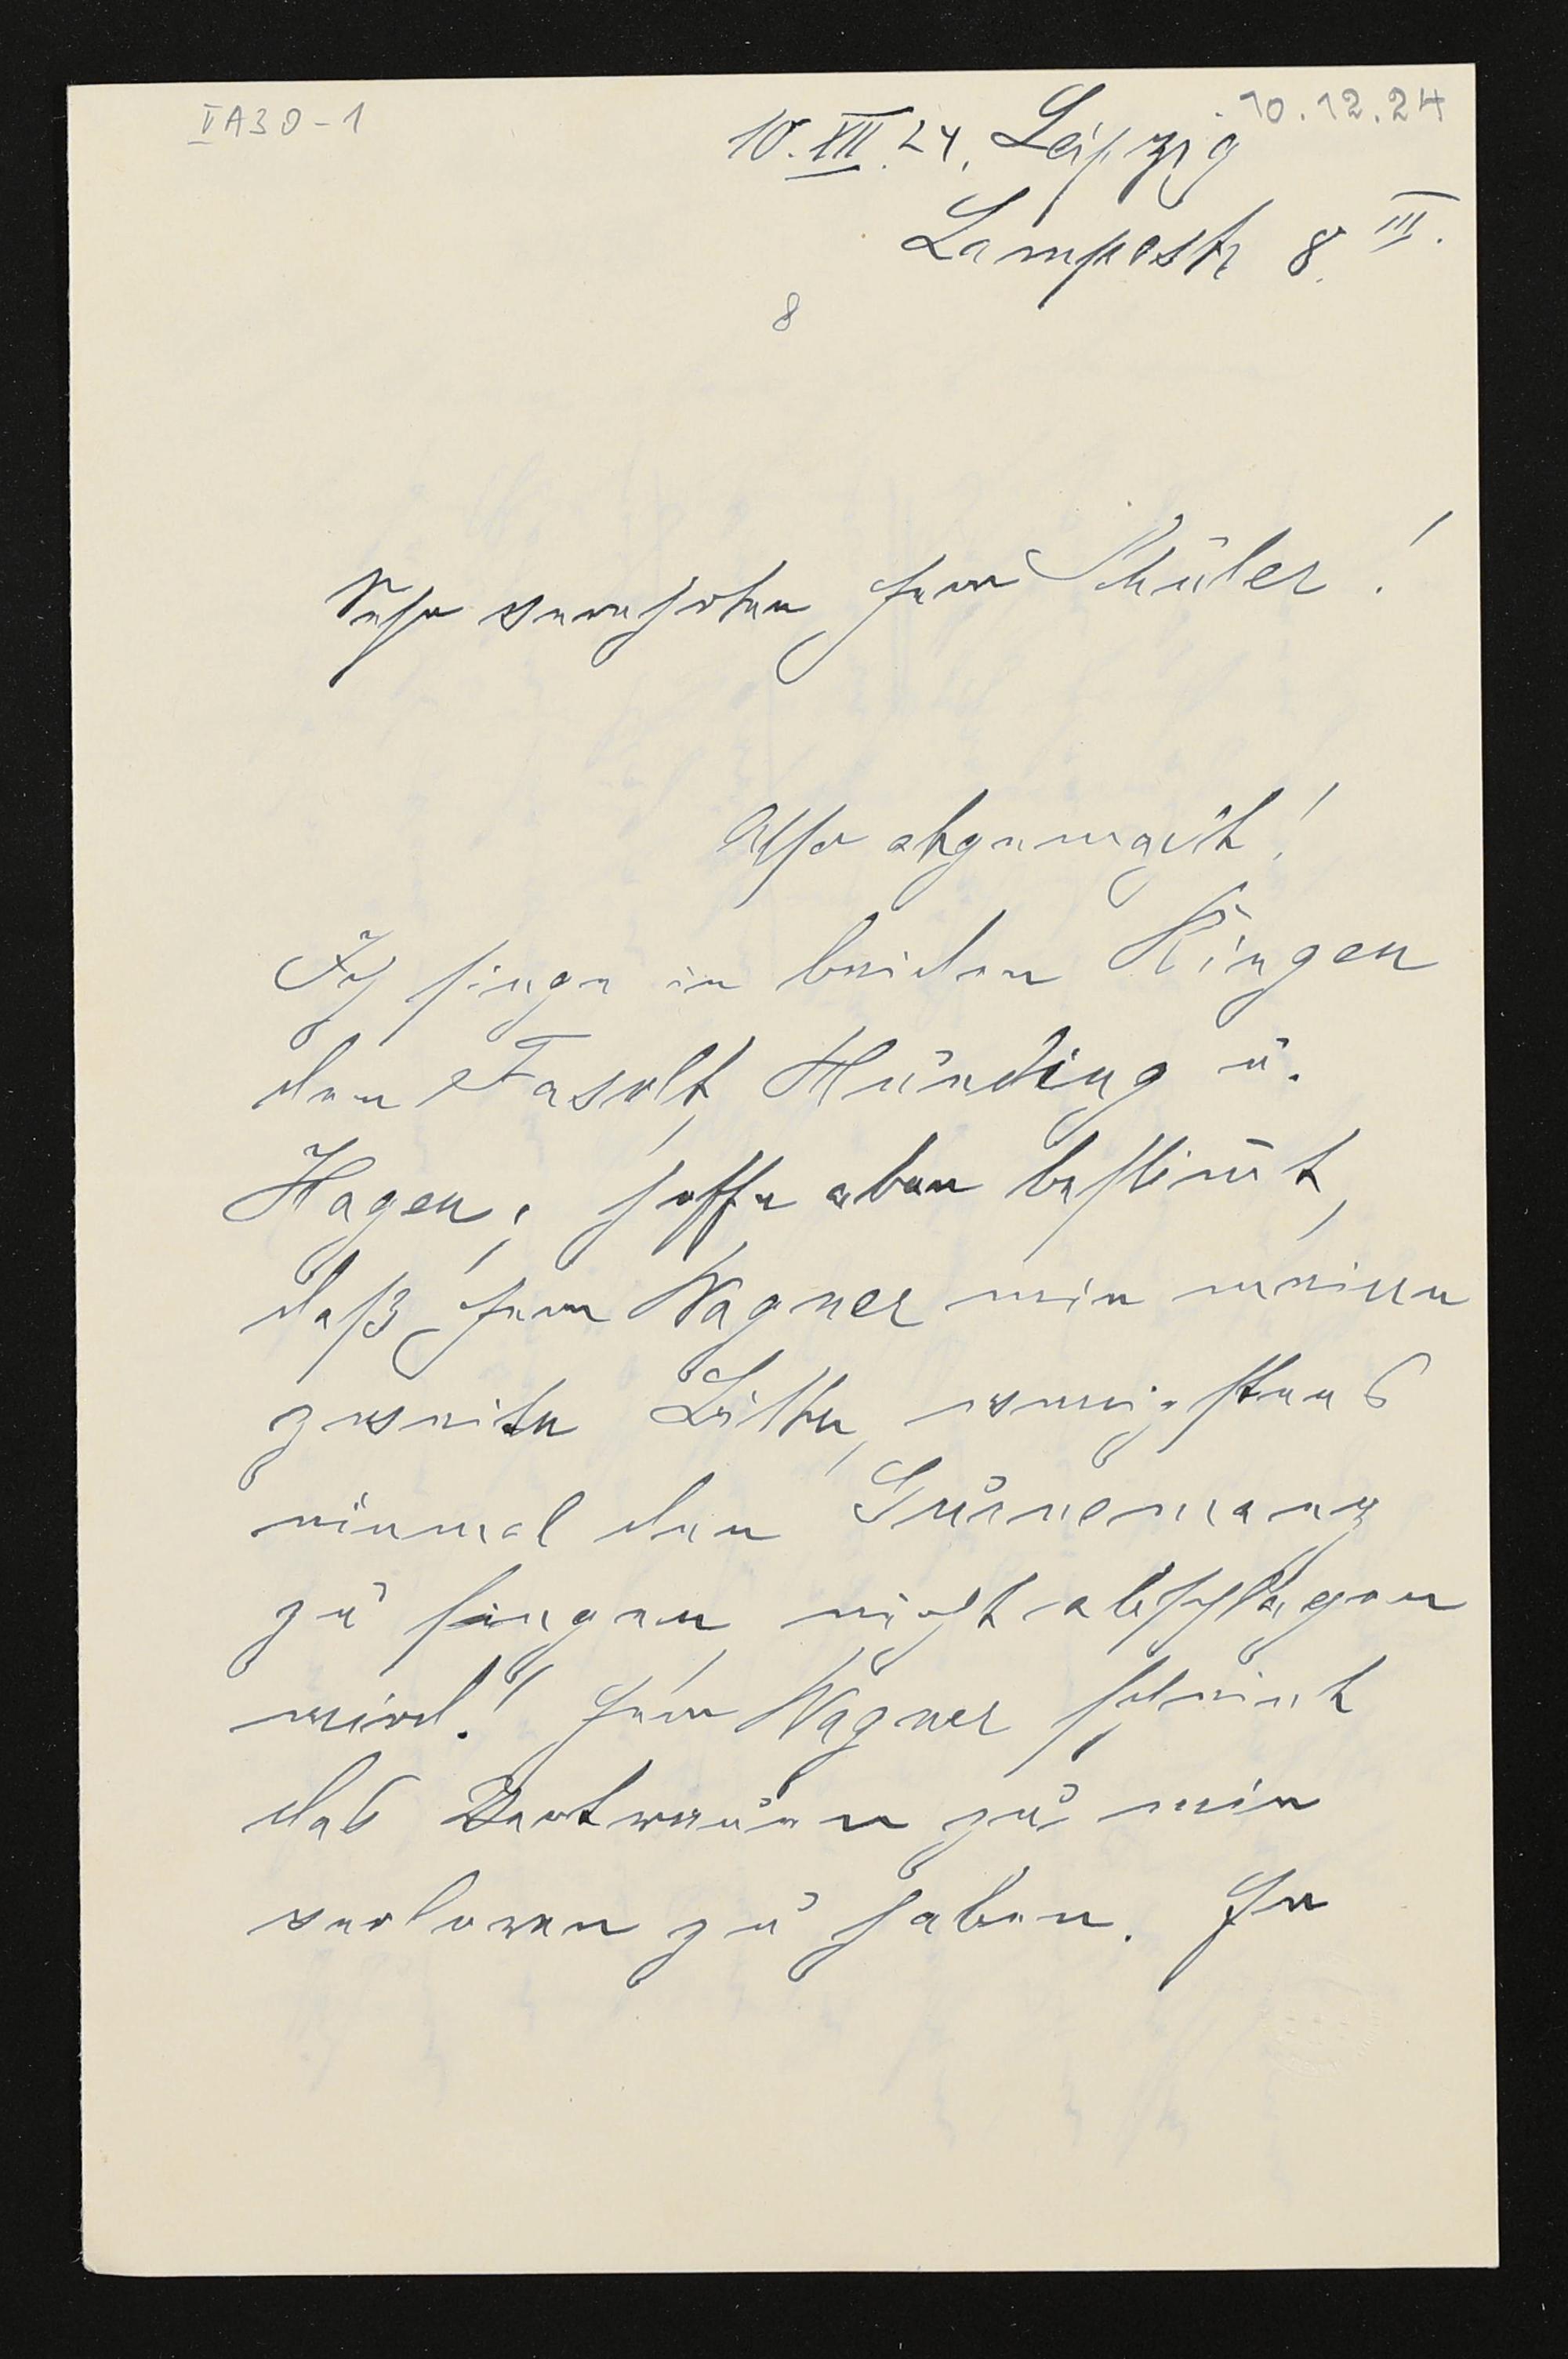 IA30-1
10.12.24
10.XII.24. Leipzig
Lampestr 8. III.
8
Sehr verehrter Herr Schüler!
Also abgemacht!
Ich singe in beiden Ringen
den Fasolt, Hunding u.
Hagen; hoffe aber bestim̅t,
daß Herr Wagner mir meine
zweite Bitte, wenigstens
einmal den Gurnemanz
zu singen, nicht abschlagen
wird! Herr Wagner scheint
das Vertrauen zu mir
verloren zu haben. Er